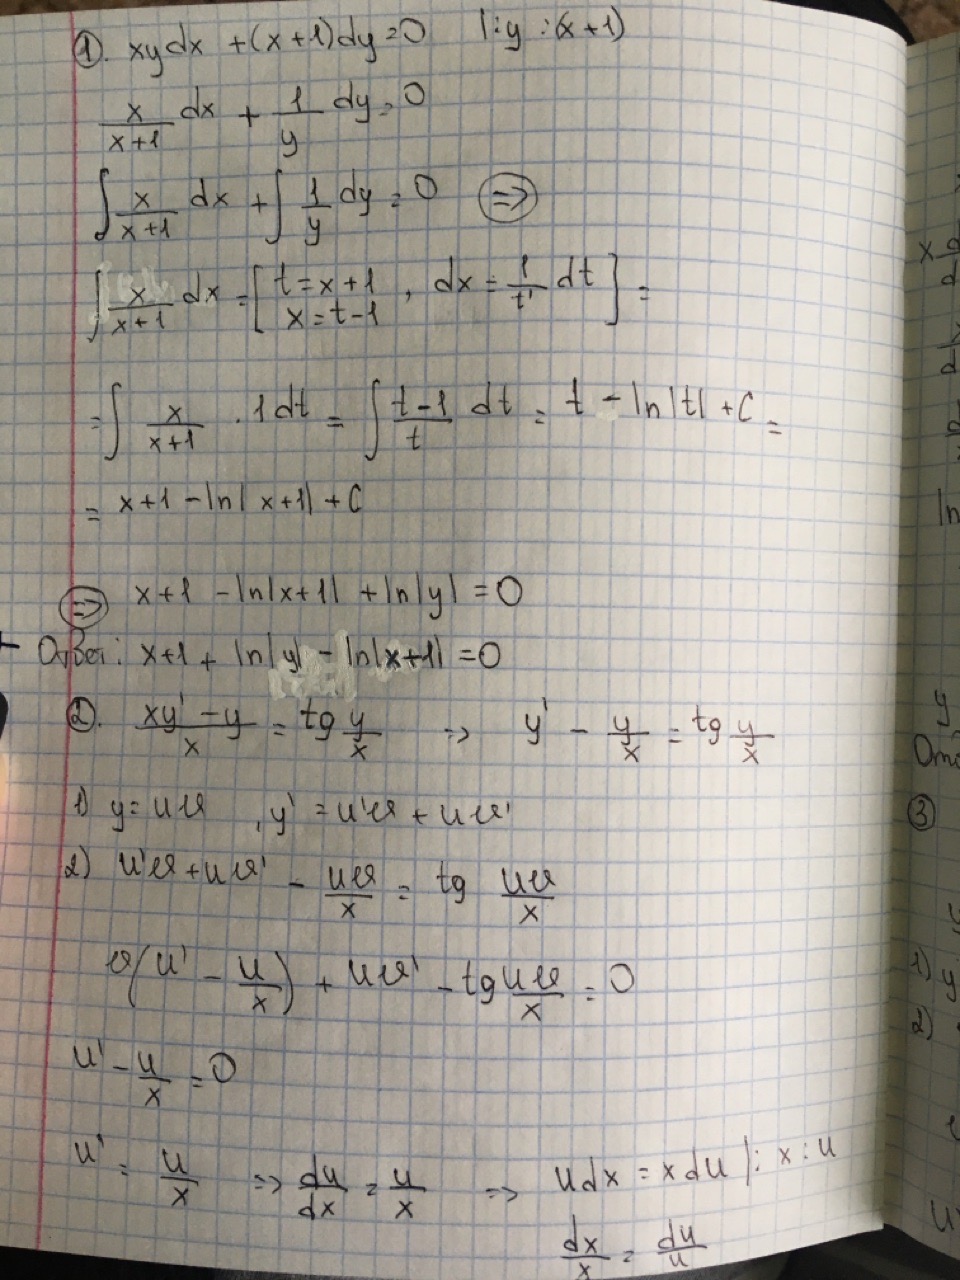 ①. xydx + (x+1)dy = 0 |:y :(x+1)
x/(x+1) dx + 1/y dy = 0
∫ x/(x+1) dx + ∫ 1/y dy = 0 ⇒
∫ x/(x+1) dx = [t = x+1, x = t-1, dx = 1/t' dt] =
= ∫ x/(x+1) · 1dt = ∫ (t-1)/t dt = t - ln|t| + C =
= x+1 - ln|x+1| + C
⇒ x+1 - ln|x+1| + ln|y| = 0
Ответ: x+1 + ln|y| - ln|x+1| = 0
②. (xy' - y)/x = tg y/x => y' - y/x = tg y/x
1) y = uv, y' = u'v + uv'
2) u'v + uv' - uv/x = tg uv/x
v(u' - u/x) + uv' - tg uv/x = 0
u' - u/x = 0
u' = u/x => du/dx = u/x => udx = xdu |: x : u
dx/x = du/u
③
1) y
2)